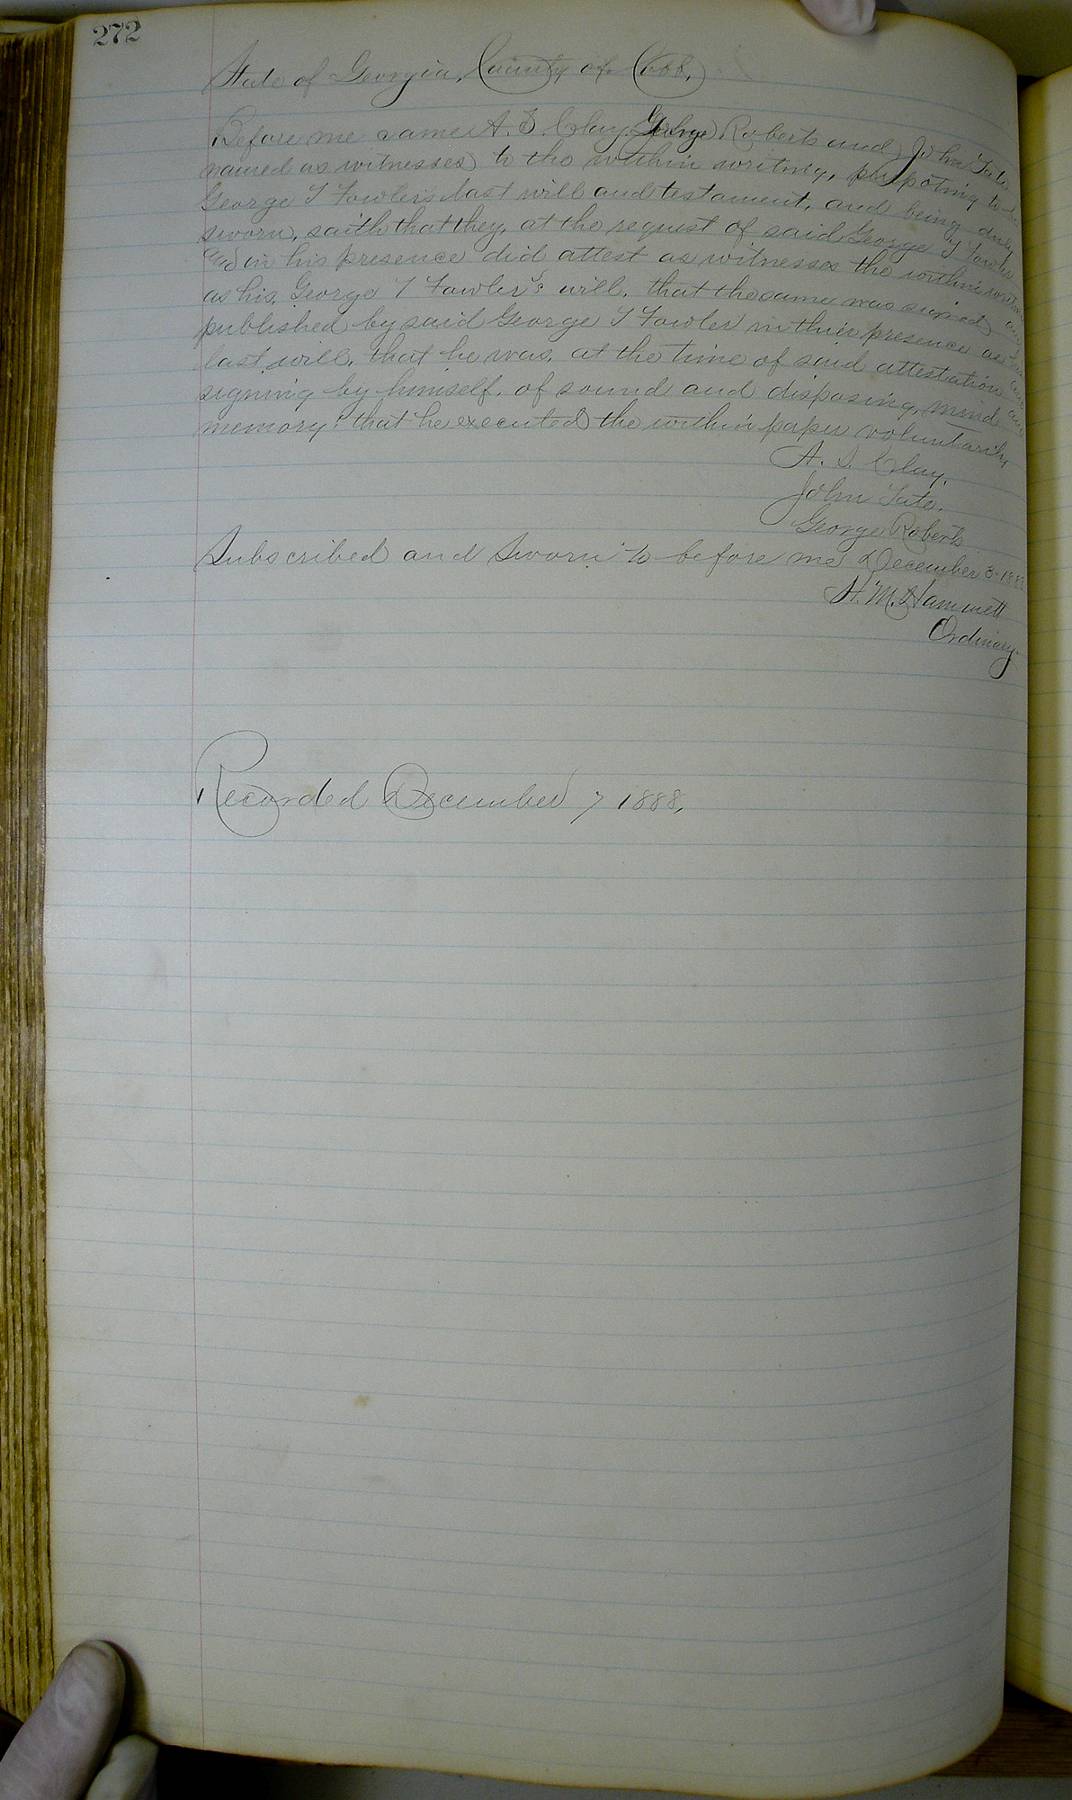 272
State of Georgia, County of Cobb,
Before me came A. S. Clay, George Roberts and John Tate
named as witnesses to the within writing, purpoting to be
George T Fowler's last will and testament, and being duly
sworn, saith that they, at the request of said George T Fowler
and in his presence did attest as witnesses the within
as his, George T Fowler's will, that the same was signed and
published by said George T Fowler in their presence as his
last will, that he was, at the time of said attestation and
signing by himself, of sound and disposing, mind and
memory & that he executed the within paper voluntarily
A. S. Clay.
John Tate.
George Roberts
Subscribed and Sworn to before me December 3-1888
H. M. Hammett
Ordinary.
Recorded December 7 1888,